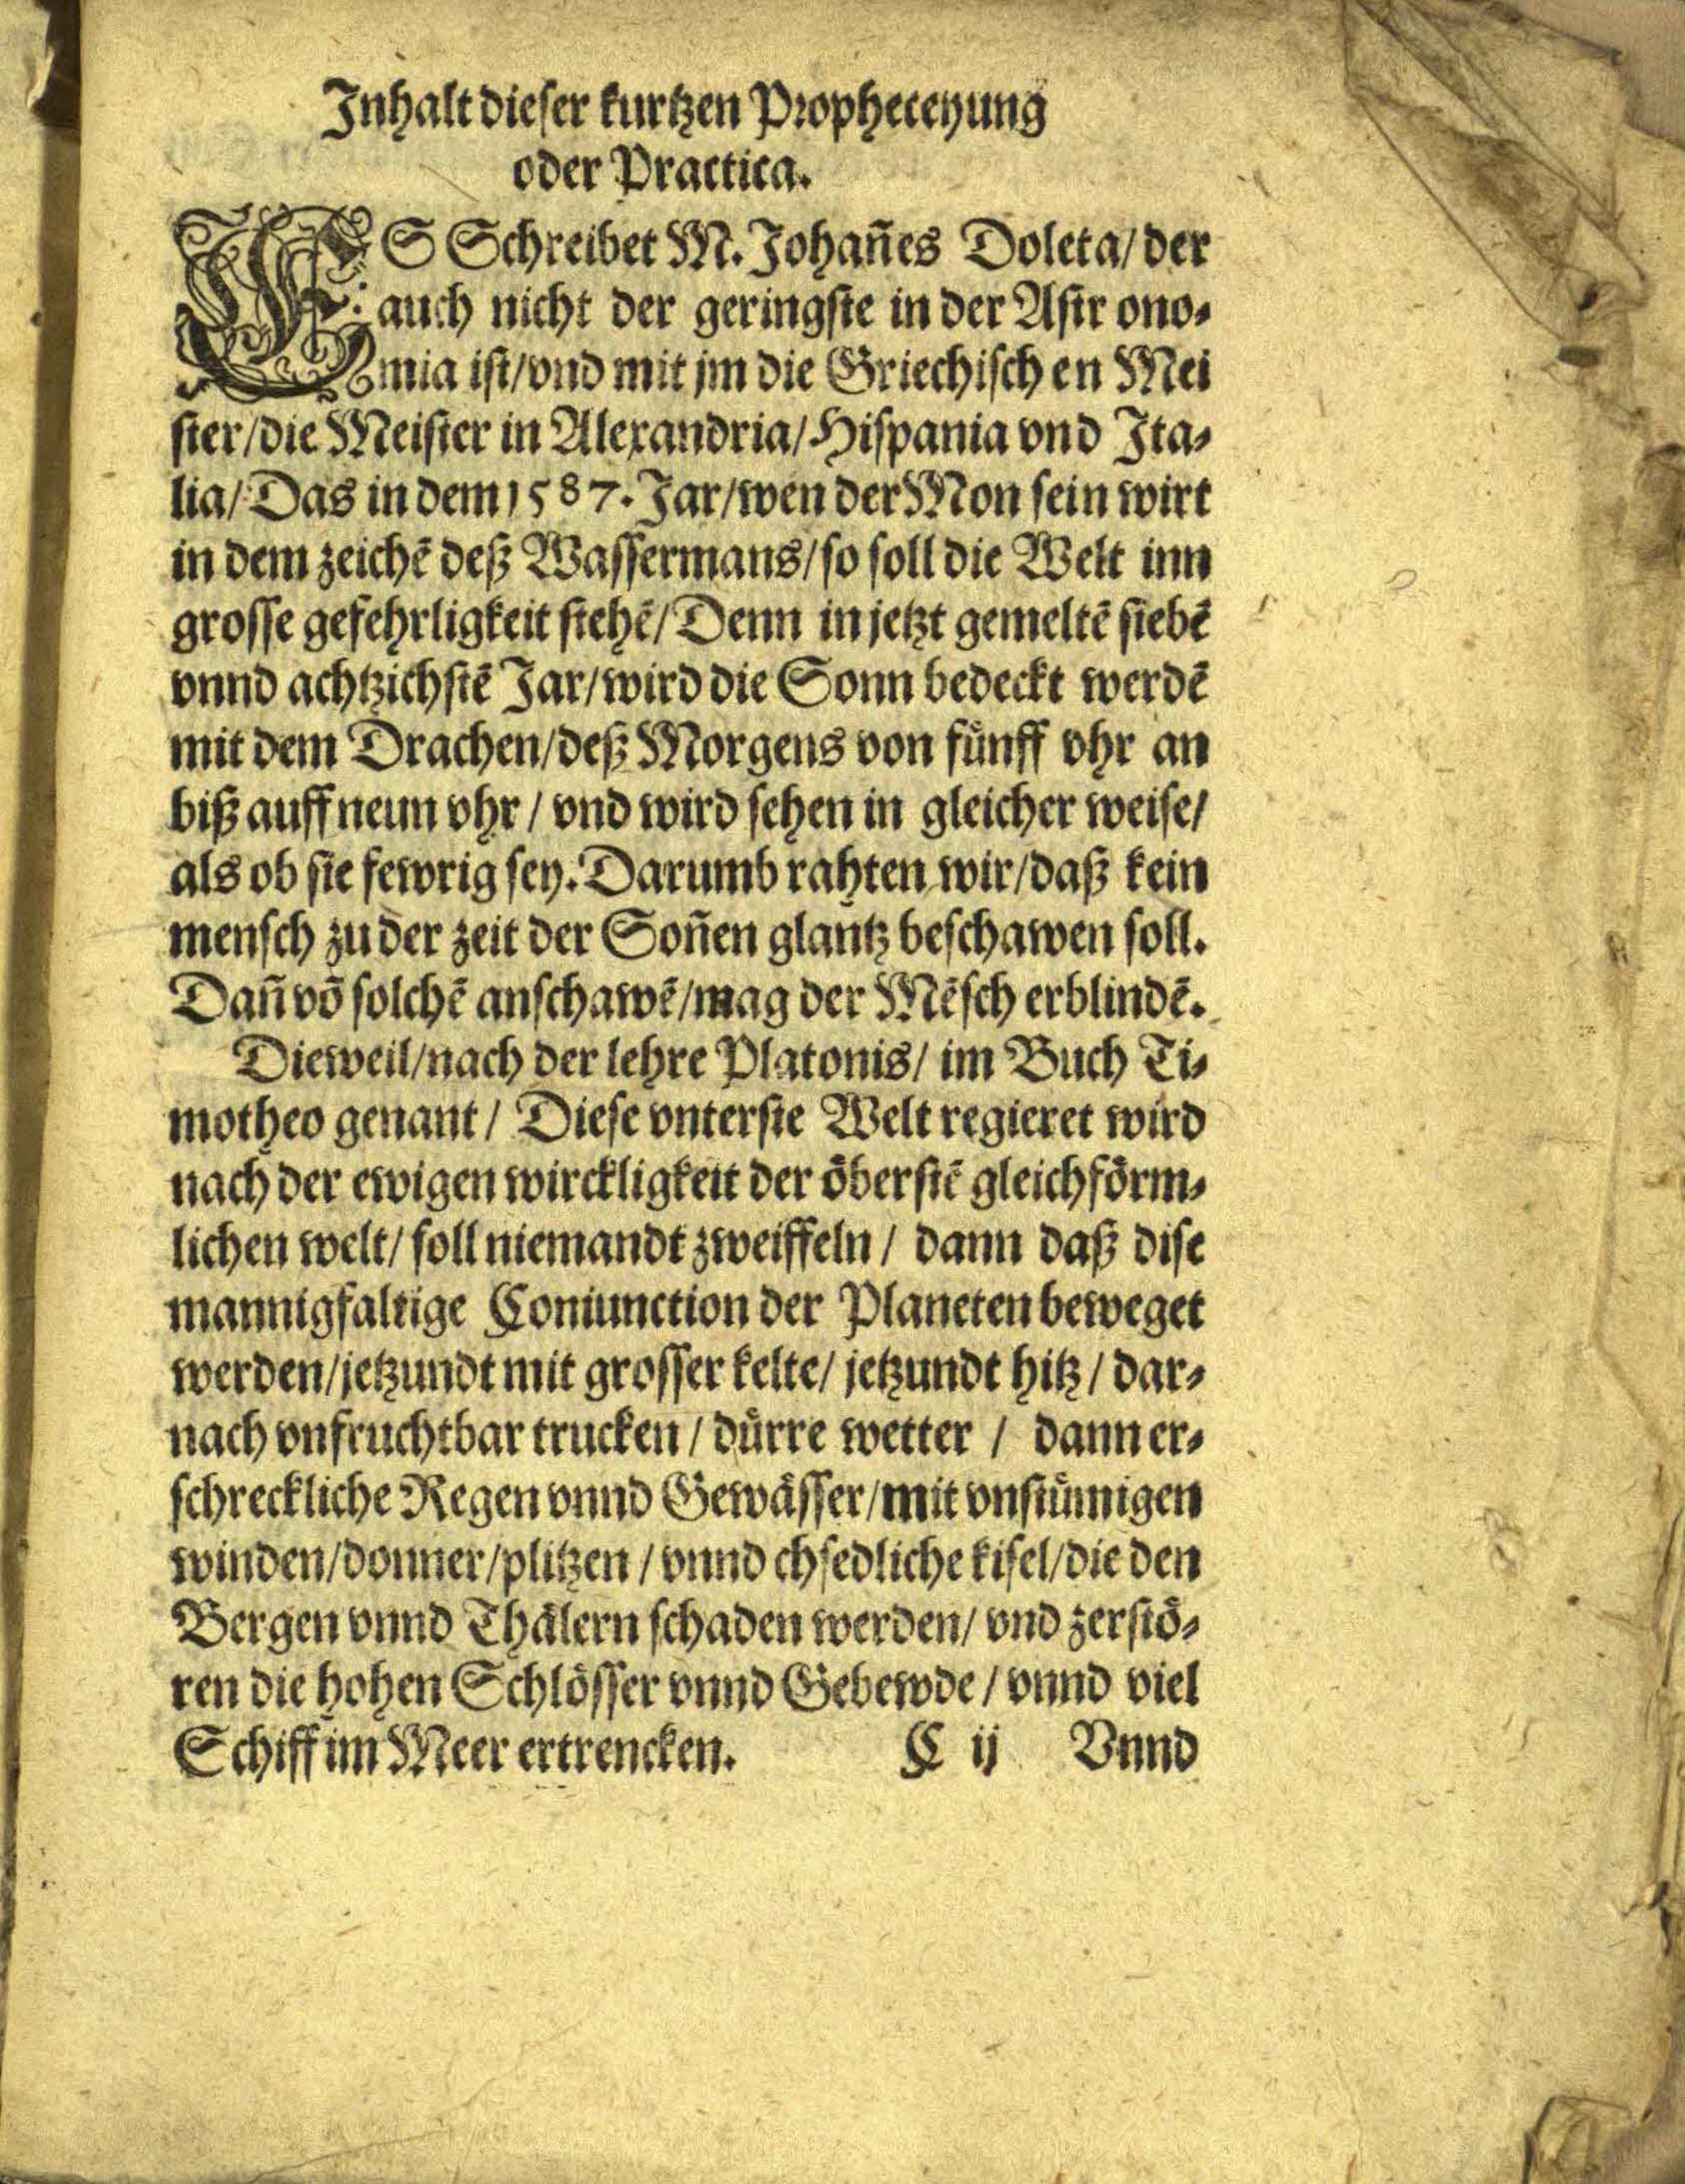 Inhalt dieser kurtzen Propheceyung
oder Practica.
ES Schreibet M. Johañes Doleta/ der
auch nicht der geringste in der Astr ono⸗
mia ist/vnd mit jm die Griechisch en Mei
ster/die Meister in Alexandria/Hispania vnd Ita⸗
lia/ Das in dem 1587. Jar/wen der Mon sein wirt
in dem zeichē deß Wassermans/so soll die Welt inn
grosse gefehrligkeit stehē/ Denn in jetzt gemeltē siebē
vnnd achtzichstē Jar/wird die Sonn bedeckt werdē
mit dem Drachen/deß Morgens von fünff vhr an
biß auff neun vhr / vnd wird sehen in gleicher weise/
als ob sie fewrig sey. Darumb rahten wir/daß kein
mensch zu der zeit der Soñen glantz beschawen soll.
Dañ võ solchē anschawē/mag der Mēsch erblindē.
Dieweil/nach der lehre Platonis/ im Buch Ti⸗
motheo genant / Diese vnterste Welt regieret wird
nach der ewigen wirckligkeit der öberstē gleichförm⸗
lichen welt/ soll niemandt zweiffeln / dann daß dise
mannigfaltige Coniunction der Planeten beweget
werden/jetzundt mit grosser kelte/ jetzundt hitz / dar⸗
nach vnfruchtbar trucken / dürre wetter / dann er⸗
schreckliche Regen vnnd Gewässer/mit vnstümigen
winden/donner/plitzen / vnnd chsedliche kisel/die den
Bergen vnnd Thälern schaden werden/ vnd zerstö⸗
ren die hohen Schlösser vnnd Gebewde / vnnd viel
Schiff im Meer ertrencken. C ij Vnnd